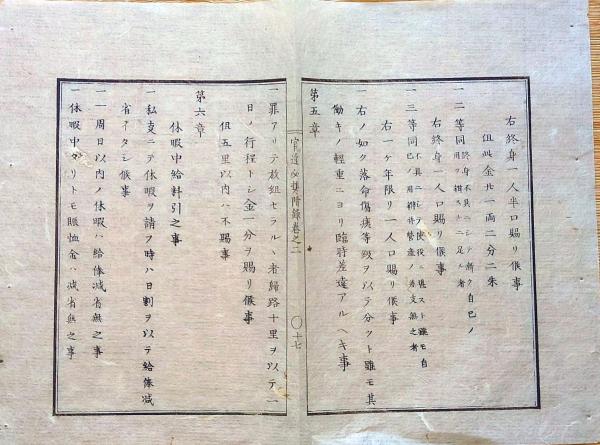 右終身一人半口賜リ候事
但此金九一両二分二朱
一二等同 終身不具ニシテ漸ク自己ノ用ヲ辨スルニ足ル者
右終身一人口賜リ候事
一三等同 不具ニシテ使役ニ堪スト雖モ自己ノ用辨并営産ノ差支無之者
右一ヶ年限リ一人口賜リ候事
一右ノ如ク落命傷痍等級ヲ以テ分ツト雖モ其
働キノ軽重ニヨリ臨時差違アルヘキ事
第五章
官途必携附録巻之二
十七
一罪アリテ放組セラルヽ者歸路十里ヲ以テ一
日ノ行程トシ金一分ヲ賜リ候事
但五里以内ハ不賜事
第六章
休暇中給料引之事
一私支ニテ休暇ヲ請フ時ハ日割ヲ以テ給俸減
省イタシ候事
一一周日以内ノ休暇ハ給俸減省無之事
一休暇中タリトモ賑恤金ハ減省無之事